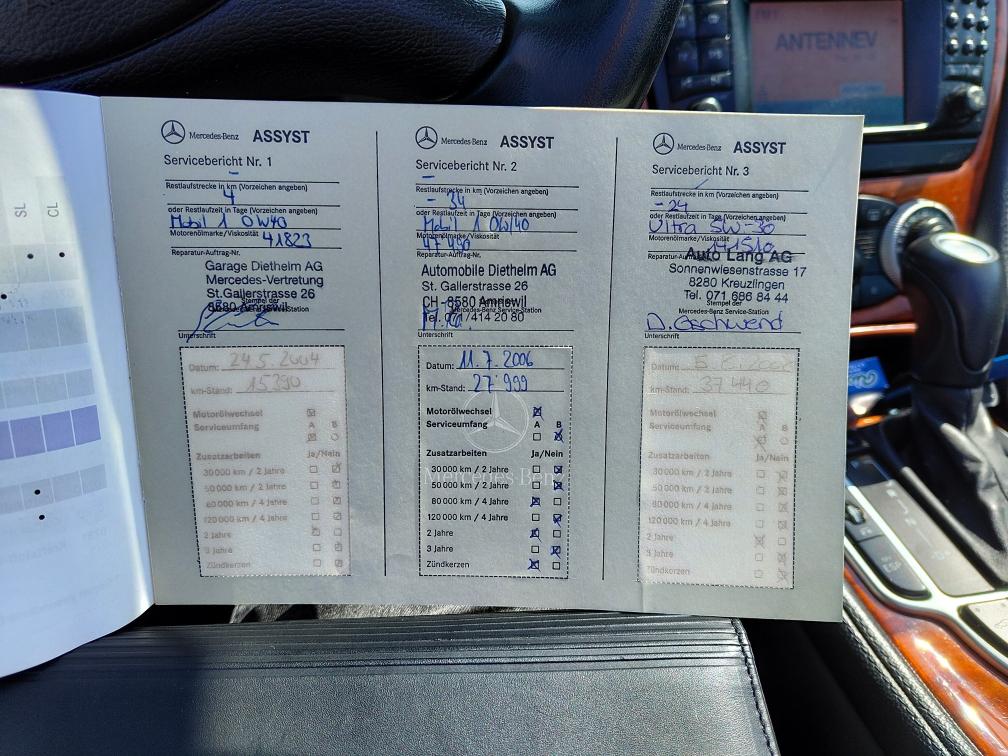 SL
CL
ANTENNEV
Mercedes-Benz ASSYST
Servicebericht Nr. 1
-
Restlaufstrecke in km (Vorzeichen angeben)
4
oder Restlaufzeit in Tage (Vorzeichen angeben)
Mobil 1 0W40
Motorenölmarke/Viskosität
41823
Reparatur-Auftrag-Nr.
Garage Diethelm AG
Mercedes-Vertretung
St.Gallerstrasse 26
8580 Amriswil
Stempel der
Unterschrift
Datum: 24.5.2004
km-Stand: 15390
Motorölwechsel
Serviceumfang A B
Zusatzarbeiten Ja/Nein
30 000 km / 2 Jahre
50 000 km / 2 Jahre
60 000 km / 4 Jahre
120 000 km / 4 Jahre
2 Jahre
3 Jahre
Zündkerzen
Mercedes-Benz ASSYST
Servicebericht Nr. 2
-
Restlaufstrecke in km (Vorzeichen angeben)
- 34
oder Restlaufzeit in Tage (Vorzeichen angeben)
Mobil 1 0W/40
Motorenölmarke/Viskosität
Reparatur-Auftrag-Nr.
Automobile Diethelm AG
St. Gallerstrasse 26
CH-8580 Amriswil
Mercedes-Benz Service-Station
Tel. 071/414 20 80
Unterschrift
Datum: 11.7.2006
km-Stand: 27'999
Motorölwechsel
Serviceumfang A B
Zusatzarbeiten Ja/Nein
Mercedes-Benz
30 000 km / 2 Jahre
50 000 km / 2 Jahre
80 000 km / 4 Jahre
120 000 km / 4 Jahre
2 Jahre
3 Jahre
Zündkerzen
Mercedes-Benz ASSYST
Servicebericht Nr. 3
Restlaufstrecke in km (Vorzeichen angeben)
- 24
oder Restlaufzeit in Tage (Vorzeichen angeben)
Ultra 5W-30
Motorenölmarke/Viskosität
141510
Reparatur-Auftrag-Nr.
Auto Lang AG
Sonnenwiesenstrasse 17
8280 Kreuzlingen
Tel. 071 686 84 44
Stempel der
Mercedes-Benz Service-Station
D. Gschwend
Unterschrift
Datum:
km-Stand: 37440
Motorölwechsel
Serviceumfang A B
Zusatzarbeiten Ja/Nein
30 000 km / 2 Jahre
50 000 km / 2 Jahre
80 000 km / 4 Jahre
120 000 km / 4 Jahre
2 Jahre
3 Jahre
Zündkerzen
ESP